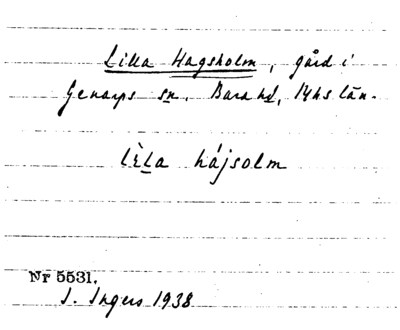 Lilla Hagsholm, gård i
Genarps sn. Bara hd, Mhs län.
lèla hájsolm
Nr 5531.
I. Ingers 1938